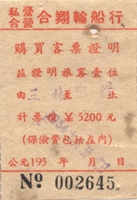 私營
合營 合翔輪船行
購買客票證明
茲證明旅客壹位
由三 至 止
計票價￥5200元
(保險費包括在內)
公元195 年 月 日
No 002645